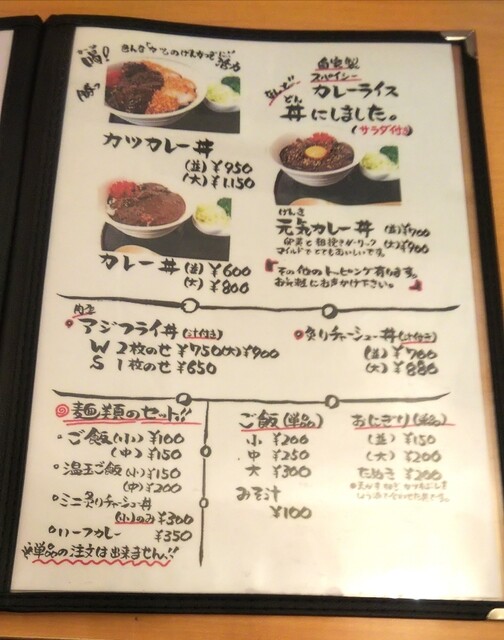 自家製
スパイシー
カレーライス
なんと
どん
丼にしました。
(サラダ付き)
カツカレー丼
(並)¥950
(大)¥1,150
カレー丼 (並)¥600
(大)¥800
げんき
元気カレー丼 (並)¥700
(大)¥900
卵黄と粗挽きガーリック
マイルドでとてもおいしいです。
『その他のトッピング有ります。
お気軽にお声かけ下さい。』
アジフライ丼(汁付き)
W 2枚のせ ¥750(大)¥900
S 1枚のせ ¥650
炙りチャーシュー丼(汁付き)
(並)¥700
(大)¥880
麺類のセット!!
ご飯(小)¥100
(中)¥150
温玉ご飯(小)¥150
(中)¥200
ミニ炙りチャーシュー丼
(小)のみ¥300
ハーフカレー
¥350
※単品の注文は出来ません!!
ご飯(単品)
小 ¥200
中 ¥250
大 ¥300
みそ汁
¥100
おにぎり(単品)
(並)¥150
(大)¥200
たぬき ¥200